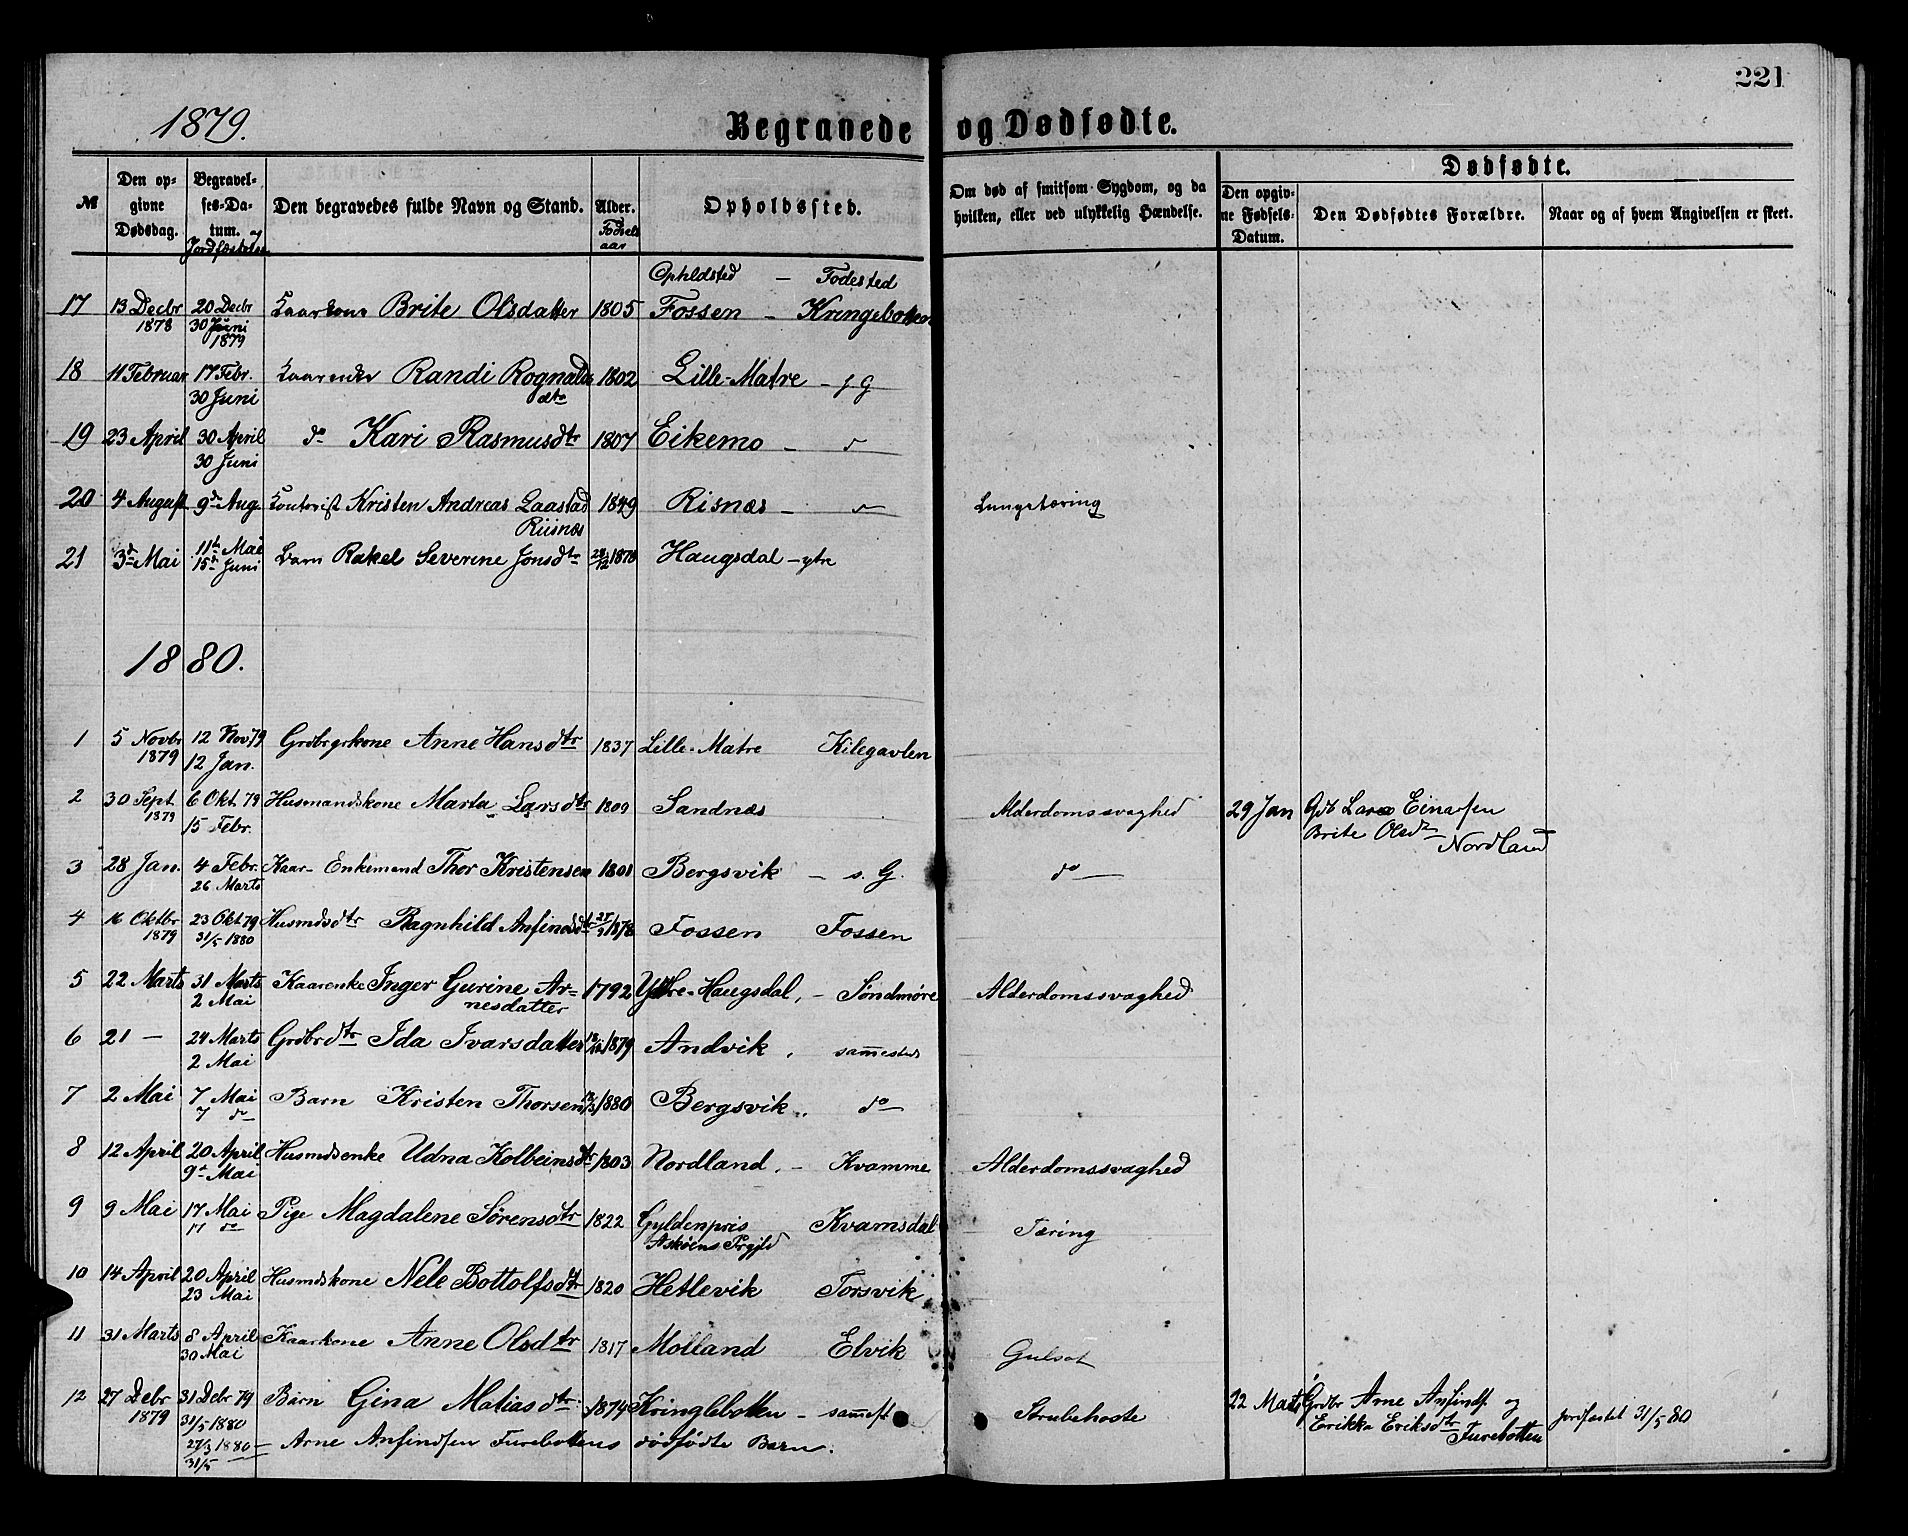 221
1879.
Begravede og Dødfødte.
№
Den opgivne Dødsdag.
Begravelses-Datum. og Jordfæstelse
Den begravedes fulde Navn og Stand.
Alder. Fødselsaar
Opholdssted.
Om død af smitsom Sygdom, og da hvilken, eller ved ulykkelig Hændelse.
Dødfødte.
Den opgivne Fødsels-Datum.
Den Dødfødtes Forældre.
Naar og af hvem Angivelsen er skeet.
Opholdsted - Fødested
17 13 Decbr 1878 20 Decbr 30 Juni 1879 Kaarkone Brite Olsdatter 1805 Fossen - Kringebotten
18 11 Februar 17 Febr. 30 Juni Kaarenke Randi Rognalds dtr 1802 Lille-Matre - s G
19 23 April 30 April 30 Juni do Kari Rasmusdtr 1807 Eikemo -
20 4 August 9de Aug. Kontorist Kristen Andreas Laastad Riisnæs 1849 Risnæs - Lungetæring
21 3de Mai 11te Mai 15de Juni Barn Rakel Severine Jonsdtr 1878 Haugsdal - ytre
1880.
1 5 Novbr 1879 12 Nov 79 12 Jan. Grdbrgrkone Anne Hansdtr 1837 Lille-Matre Kilegavlen
2 30 Sept 1879 6 Okt 79 15 Febr. Husmandskone Marta Larsdtr 1809 Sandnæs Alderdomssvaghed 29 Jan Gdb Lars Einarsen Brite Olsdr Nordland
3 28 Jan. 4 Febr. 26 Marts Kaar- Enkemand Thor Kristensen 1801 Bergsvik - s. G. do
4 16 Oktbr 1879 23 Okt 79 31/5 1880 Husmdsdtr Ragnhild Anfinnsdtr 1878 Fossen Fossen
5 22 Marts 31 Marts 2 Mai Kaarenke Inger Gurine Arnesdatter 1792 Ytre-Haugsdal, - Søndmøre Alderdomssvaghed
6 21 - 24 Marts 2 Mai Grdbrdtr Ida Ivarsdatter 1879 Andvik, sammesteds
7 2 Mai 7 Mai 7 do Barn Kristen Thorsen 1880 Bergsvik, do
8 12 April 20 April 9de Mai Husmdsenke Udna Kolbeinsdtr 1803 Nordland, - Kvamme Alderdomssvaghed
9 9 Mai 17 Mai 17 do Pige Magdalene Sørensdtr 1822 Gyldenpris Askøens Prgjld Kvamsdal Tæring
10 14 April 20 April 23 Mai Husmdskone Nele Bottolfsdtr 1820 Hetlevik Torsvik
11 31 Marts 8 April 30 Mai Kaarkone Anne Olsdtr 1817 Molland Elvik Gulsot
12 27 Debr 1879 31 Debr 79 31/5 1880 Barn Gina Matiasdtr 1874 Kringlebotten - sammest Strubehoste 22 Marts Grdbr Arne Anfindsen og Erikka Eriksdtr Furebotten jordfæstet 31/5 80
27/3 1880 31/5 - Arne Anfindsen Furebottens dødfødte Barn.